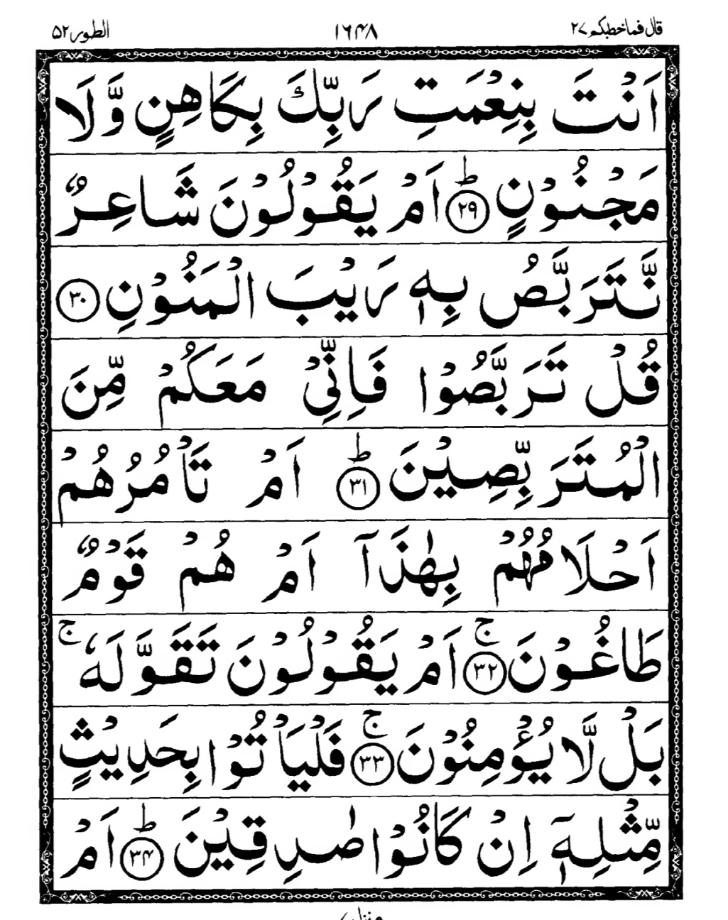 قال فما خطبكم ٢٧ ١٦٤٨ الطور ٥٢
اَنْتَ بِنِعْمَتِ رَبِّكَ بِكَاهِنٍ وَّلَا
مَجْنُوْنٍ ؕ﴿۲۹﴾ اَمْ يَقُوْلُوْنَ شَاعِرٌ
نَّتَرَبَّصُ بِهٖ رَيْبَ الْمَنُوْنِ ﴿۳۰﴾
قُلْ تَرَبَّصُوْا فَاِنِّيْ مَعَكُمْ مِّنَ
الْمُتَرَبِّصِيْنَ ؕ﴿۳۱﴾ اَمْ تَاْمُرُهُمْ
اَحْلَامُهُمْ بِهٰذَآ اَمْ هُمْ قَوْمٌ
طَاغُوْنَ ۚ﴿۳۲﴾ اَمْ يَقُوْلُوْنَ تَقَوَّلَهٗ ۚ
بَلْ لَّا يُؤْمِنُوْنَ ۚ﴿۳۳﴾ فَلْيَاْتُوْا بِحَدِيْثٍ
مِّثْلِهٖٓ اِنْ كَانُوْا صٰدِقِيْنَ ؕ﴿۳۴﴾ اَمْ
منزل ٧